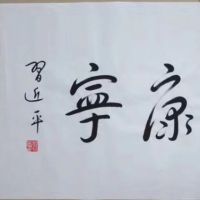 康寧
習近平